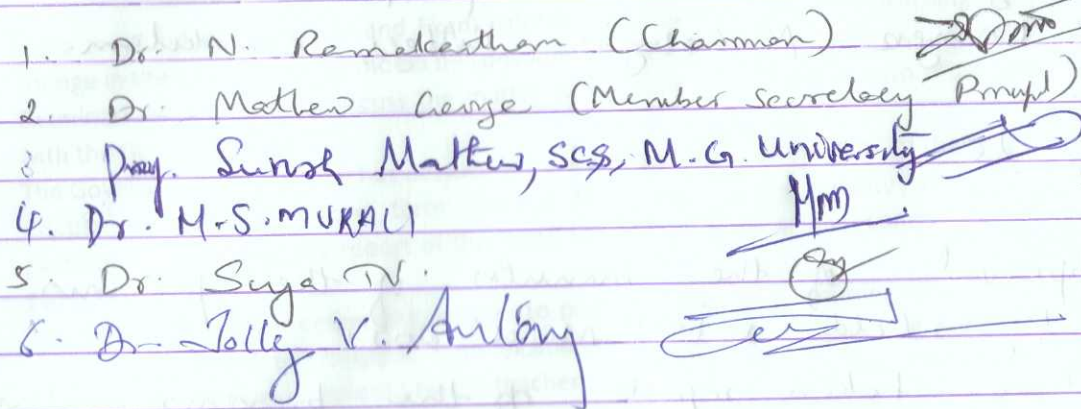 1. Dr N. Ramakantham (Chairman)
2. Dr. Mathew George (Member secretary Principal)
3 Prof. Suresh Mathew, SCS, M.G. University
4. Dr. M.S. MURALI
5 Dr. Suja T.V.
6. Dr. Jolly V. Antony